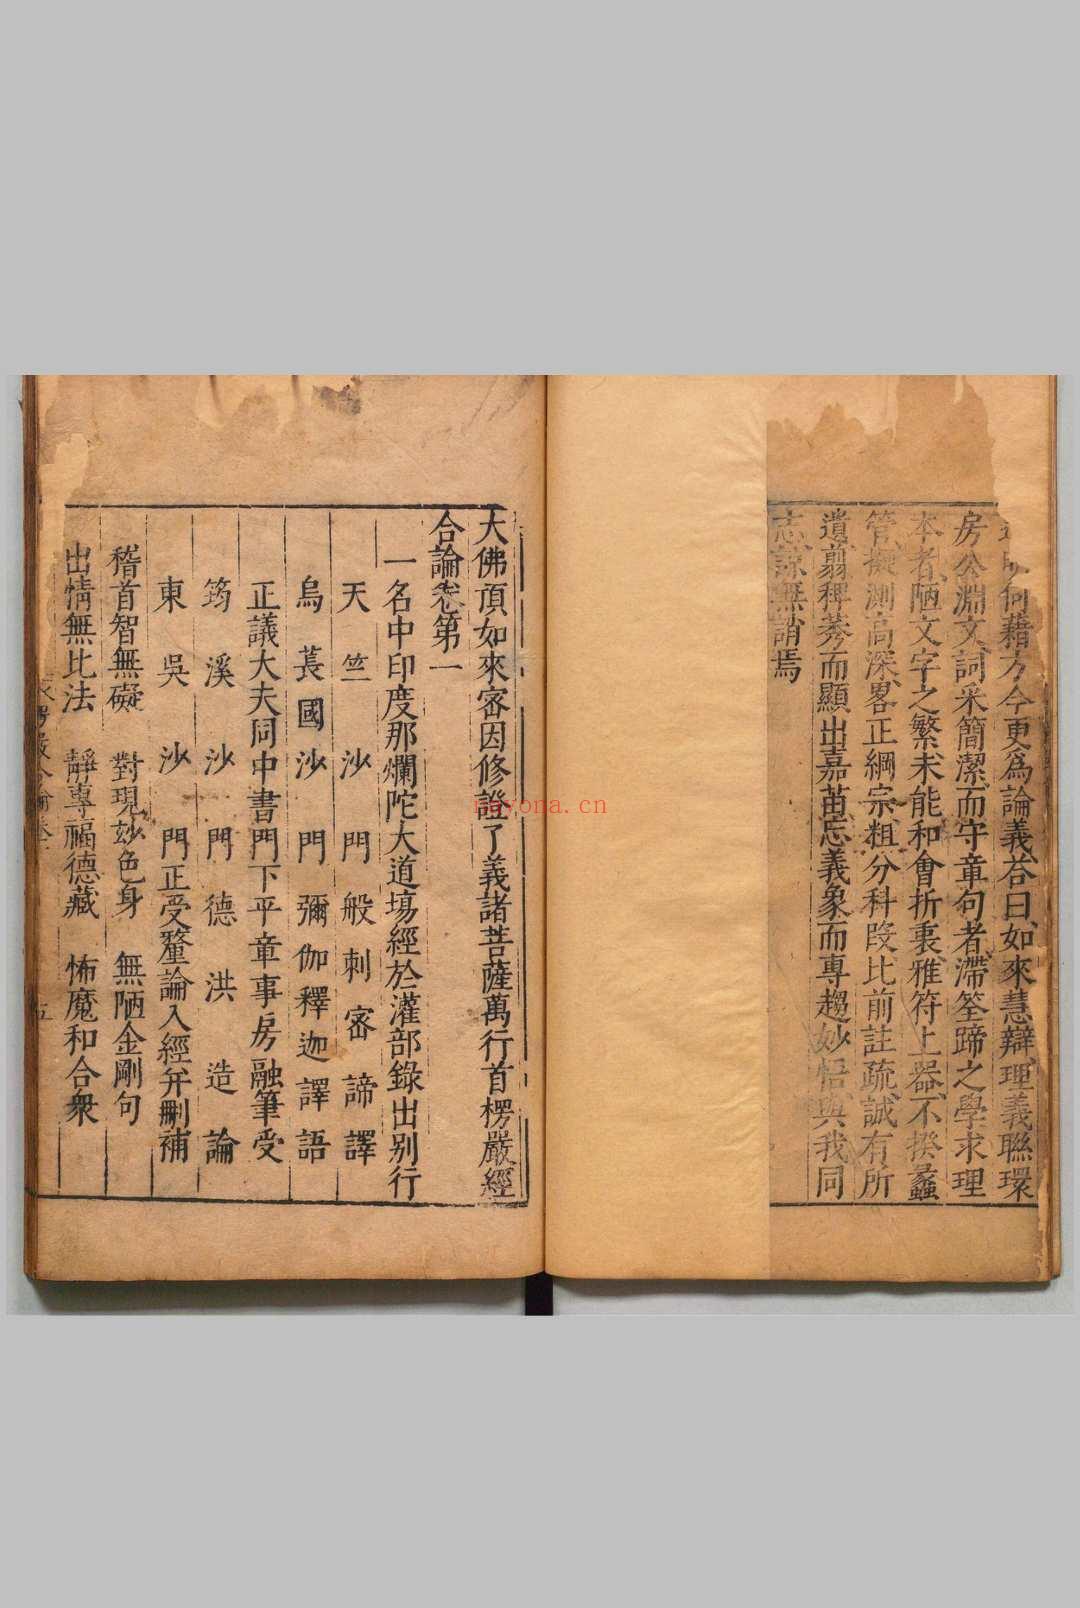 何藉方今更爲論義荅曰如來慧辯理義聯環
房公淵文詞采簡潔而守章句者滯筌蹄之學求理
本者陋文字之繁未能和會折衷雅符上器不揆蠡
管擬測高深畧正綱宗粗分科段比前註疏誠有所
遺翦稗莠而顯出嘉苗忘義象而專趨妙悟與我同
志諒無誚焉
大佛頂如來密因修證了義諸菩薩萬行首楞嚴經
合論卷第一
一名中印度那爛陀大道場經於灌部錄出別行
天竺沙門般刺密諦譯
烏萇國沙門彌伽釋迦譯語
正議大夫同中書門下平章事房融筆受
筠溪沙門德洪造論
東吳沙門正受釐論入經并刪補
稽首智無礙 對現玅色身 無陋金剛句
出情無比法 靜專福德藏 怖魔和合衆
楞嚴合論卷一
五
nayona.cn